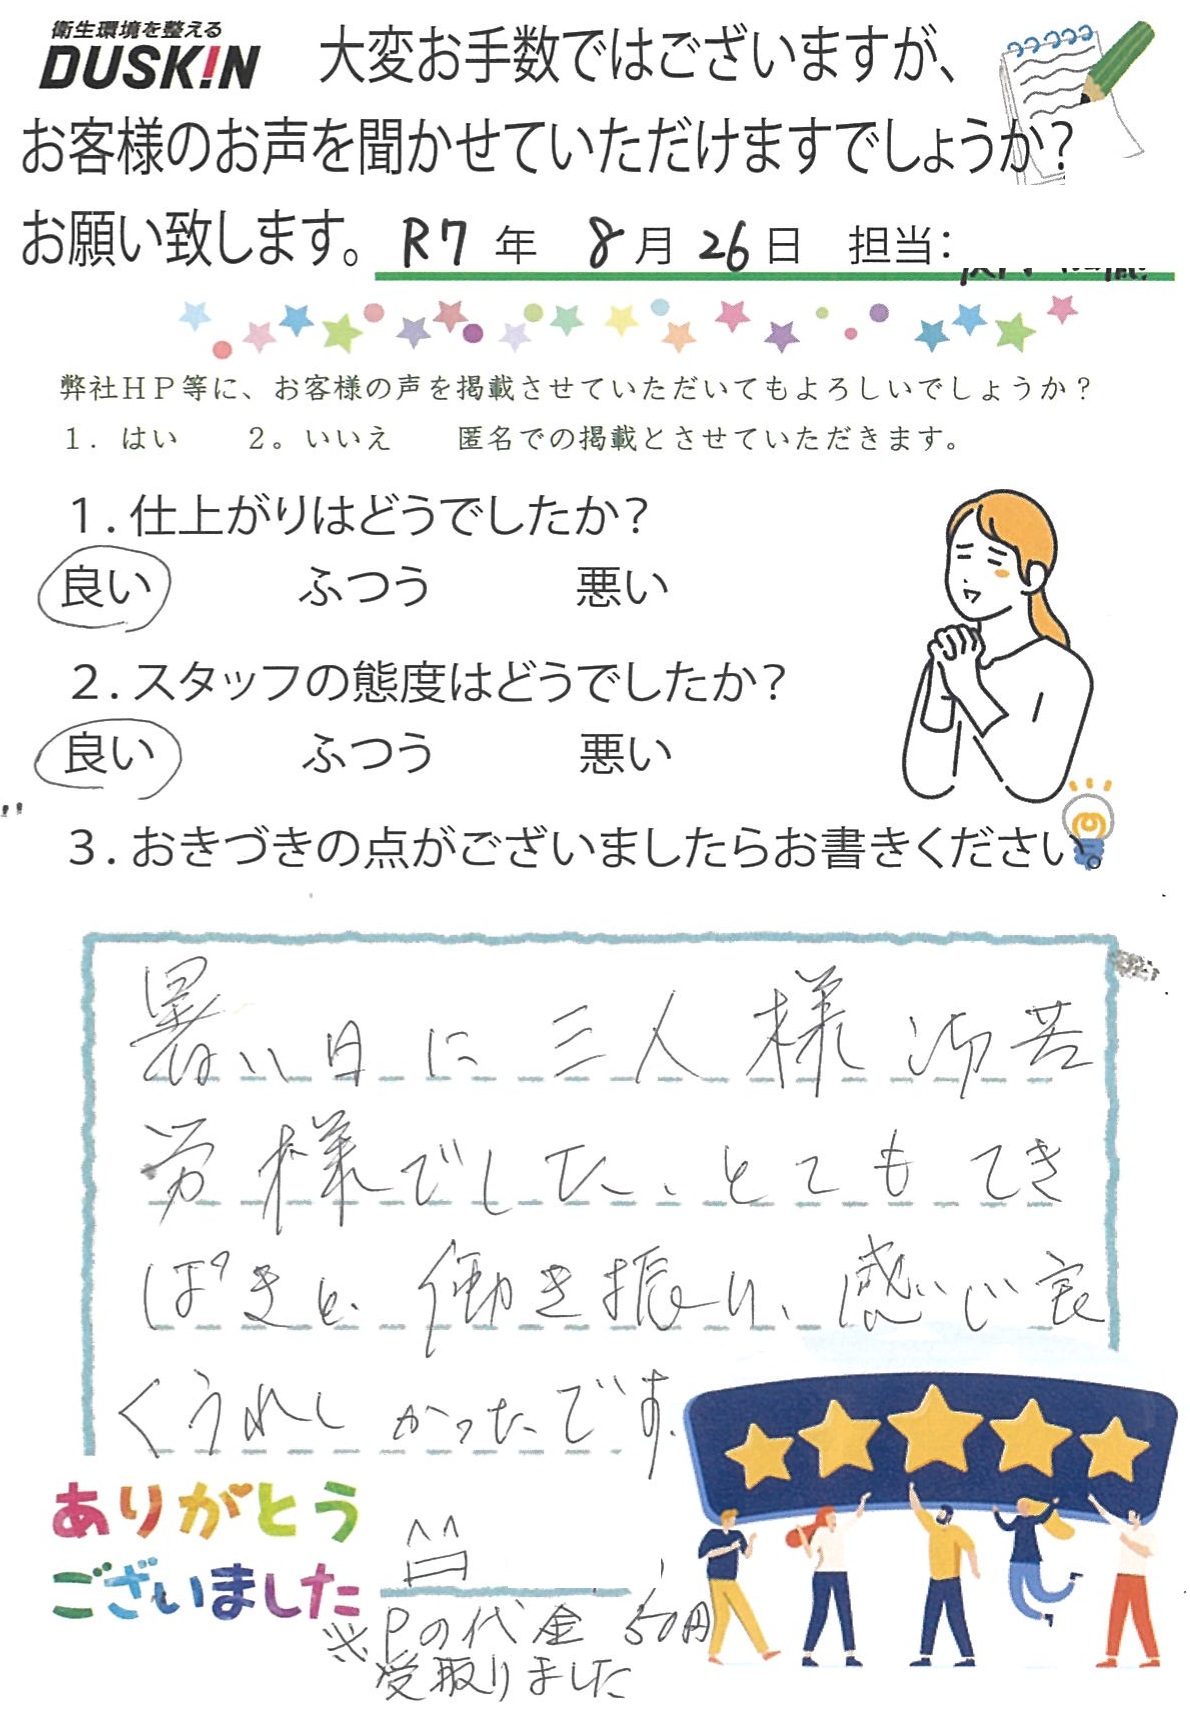 衛生環境を整える
DUSKIN
大変お手数ではございますが、
お客様のお声を聞かせていただけますでしょうか?
お願い致します。 R7 年 8 月 26 日 担当:
弊社HP等に、お客様の声を掲載させていただいてもよろしいでしょうか?
1. はい 2。いいえ 匿名での掲載とさせていただきます。
1. 仕上がりはどうでしたか?
良い ふつう 悪い
2. スタッフの態度はどうでしたか?
良い ふつう 悪い
3. おきづきの点がございましたらお書きください。
暑い日に三人様御苦
労様でした、とてもてき
ぱきと、働き振り、感じ良
くうれしかったです.
ありがとう
ございました
※Pの代金 50円
受取りました